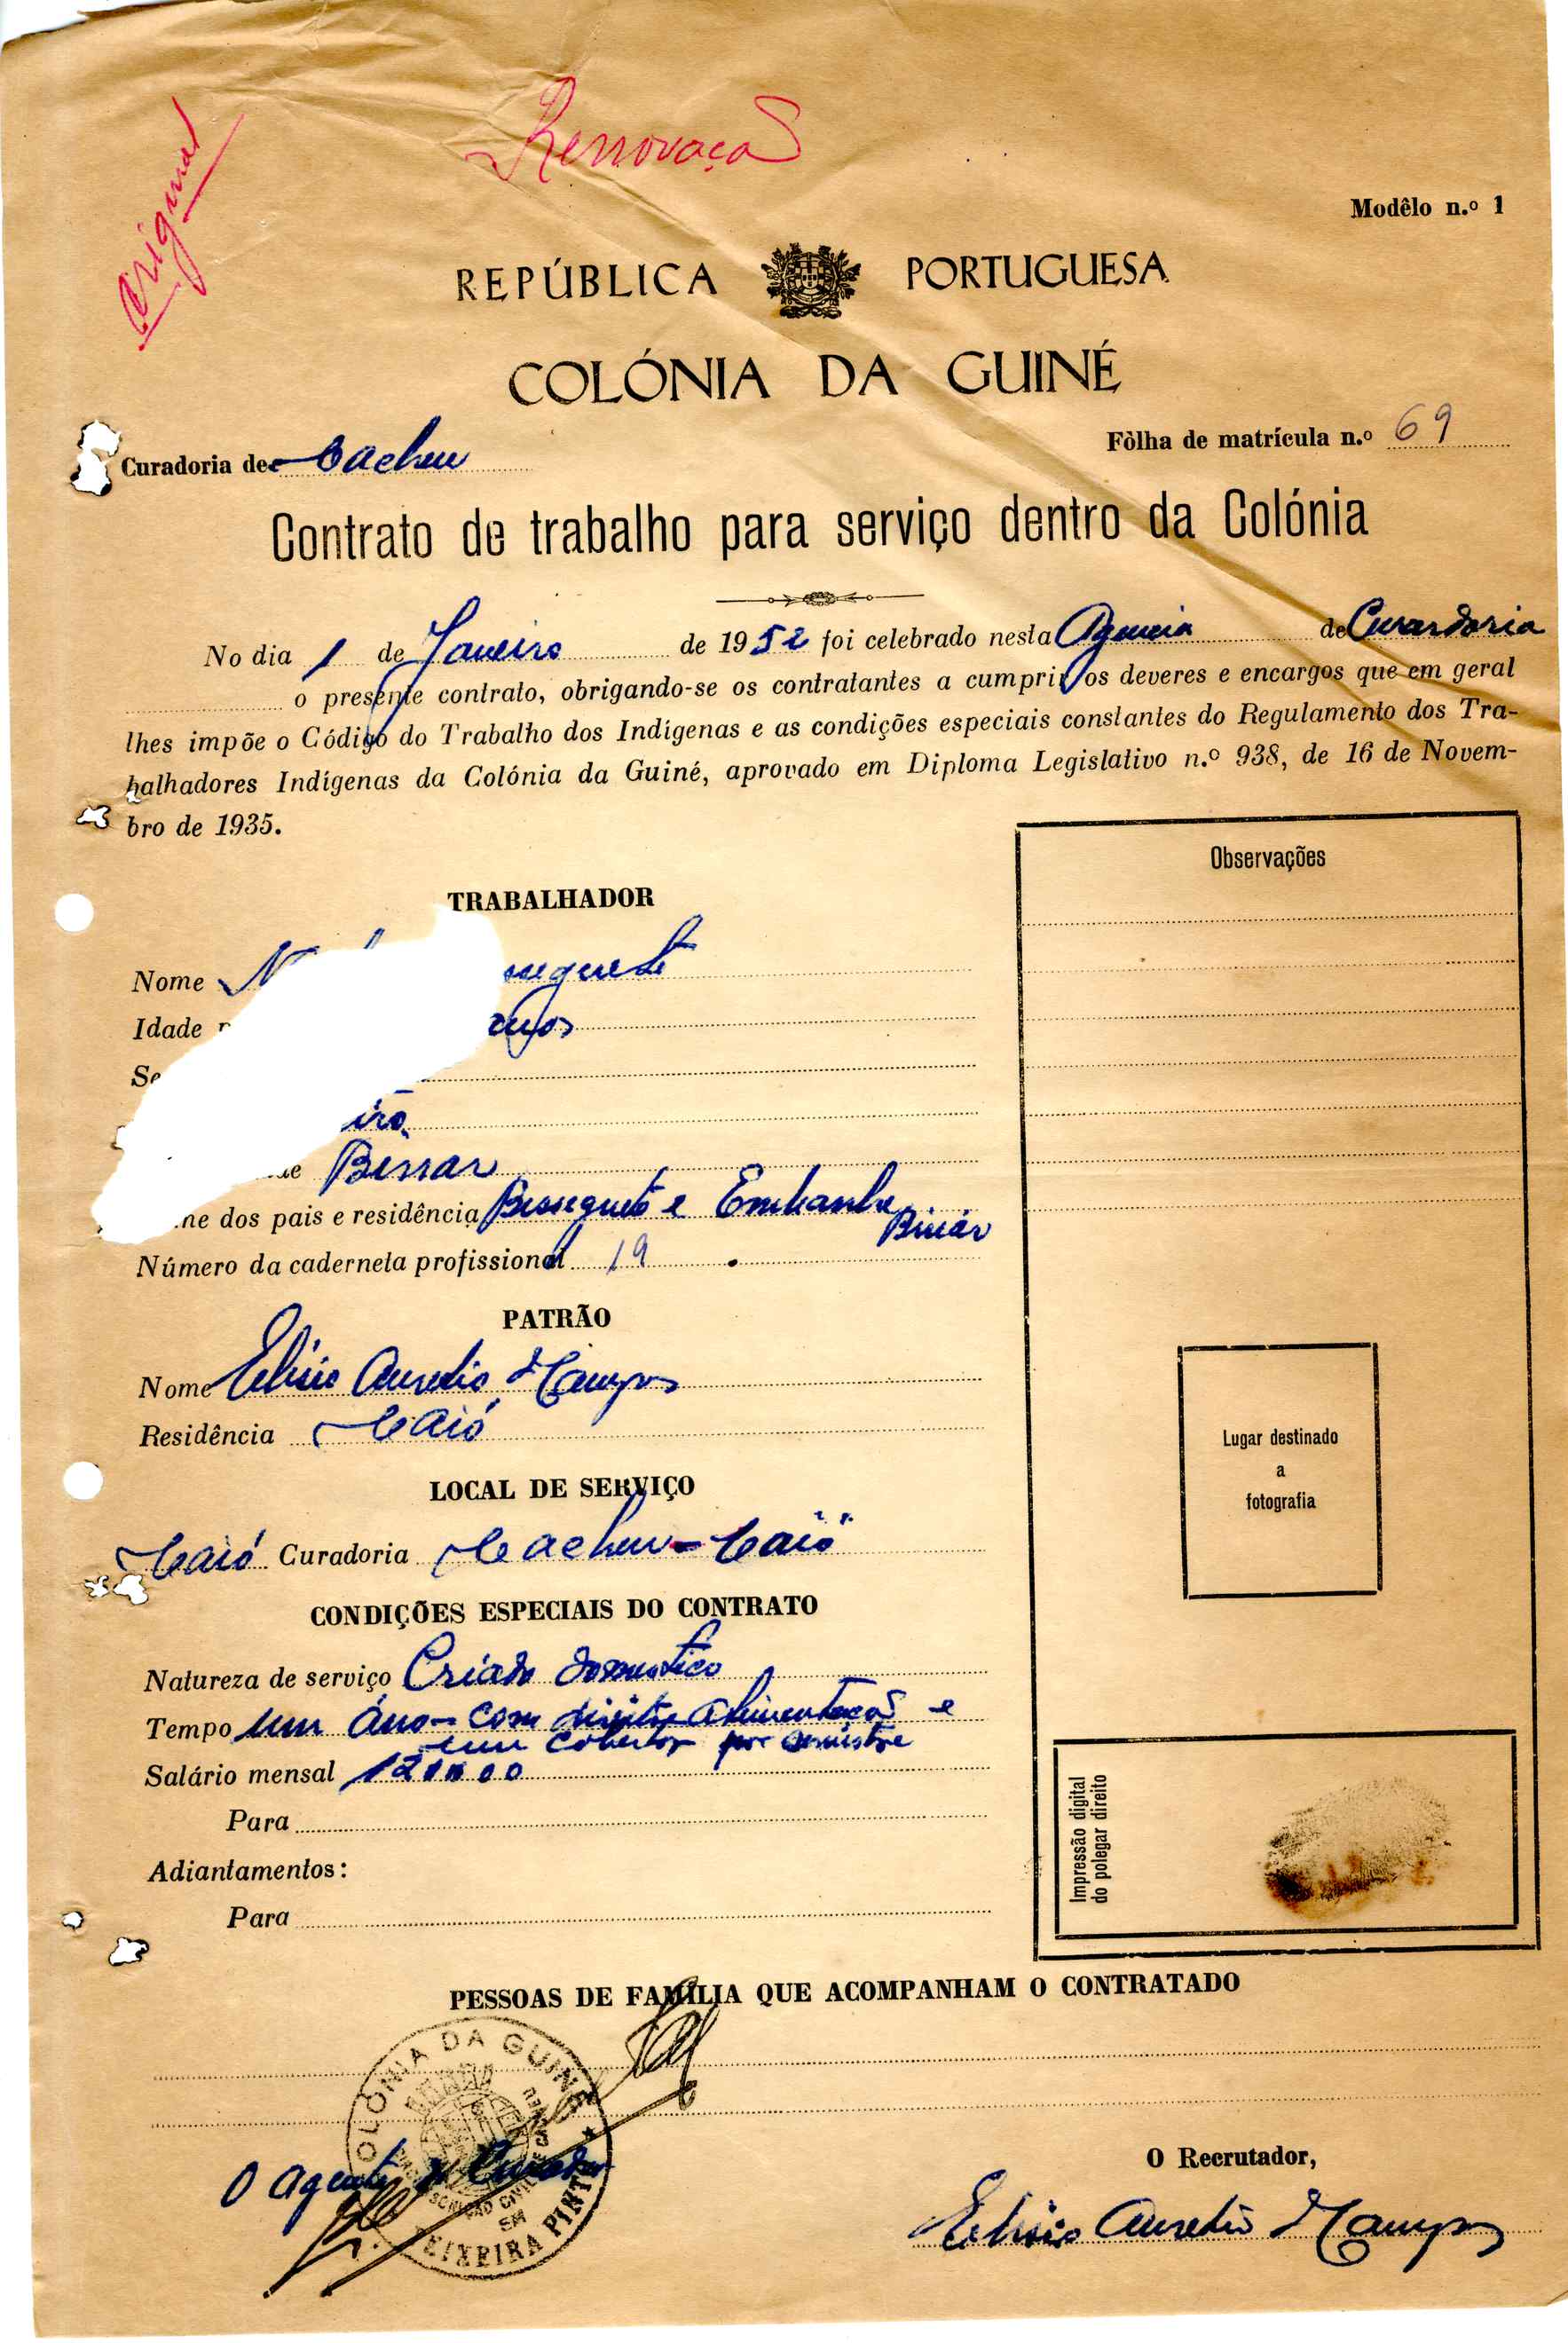 Original
Renovaçaõ
Modêlo n.º 1
REPÚBLICA PORTUGUESA
COLÓNIA DA GUINÉ
Curadoria de Cacheu
Fôlha de matrícula n.º 69
Contrato de trabalho para serviço dentro da Colónia
No dia 1 de Janeiro de 1952 foi celebrado nesta Agencia de Curardoria
o presente contrato, obrigando-se os contratantes a cumprir os deveres e encargos que em geral
lhes impõe o Código do Trabalho dos Indígenas e as condições especiais constantes do Regulamento dos Tra-
balhadores Indígenas da Colónia da Guiné, aprovado em Diploma Legislativo n.º 938, de 16 de Novem-
bro de 1935.
Observações
TRABALHADOR
Nome
Idade anos
Se
iro
Binar
dos pais e residência Bessegueto e
Binár
Número da caderneta profissional 19
PATRÃO
Nome Elisio Aurelio d'Campos
Residência Caió
Lugar destinado
a
fotografia
LOCAL DE SERVIÇO
Caió Curadoria Cacheu-Caió
CONDIÇÕES ESPECIAIS DO CONTRATO
Natureza de serviço Criado domestico
Tempo um Áno- com direito Alimentaçaõ e
um cobertor por semistre
Salário mensal
Para
Adiantamentos:
Para
Impressão digital
do polegar direito
PESSOAS DE FAMÍLIA QUE ACOMPANHAM O CONTRATADO
COLONIA DA GUINÉ
TEIXEIRA PINTO
O Agente do Curador
O Recrutador,
Elisio Aurelio d'Campos